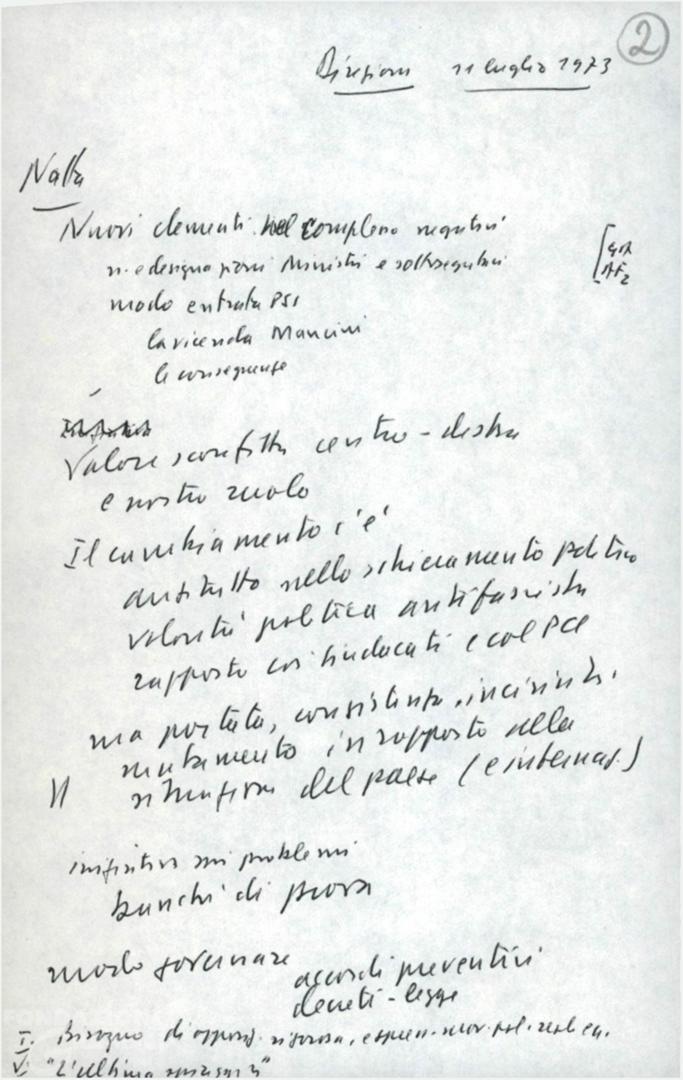 2
Direzione 11 luglio 1973
Natta
Nuovi elementi nel complesso negativi
n. e designazioni Ministri e sottosegretari
modo entrata PSI
la vicenda Mancini
le conseguenze
Valore sconfitta centro-destra
e nostro ruolo
Il cambiamento c'è
anzitutto nello schieramento politico
volontà politica antifascista
rapporto coi sindacati e col PCI
ma portata, consistenza, incisività
mutamento in rapporto alla
situazione del paese (e internaz.)
iniziativa sui problemi
banchi di prova
modo governare
accordi preventivi
decreti-legge
I. Bisogno di opposiz. rigorosa,
V. "L'ultima spiaggia"